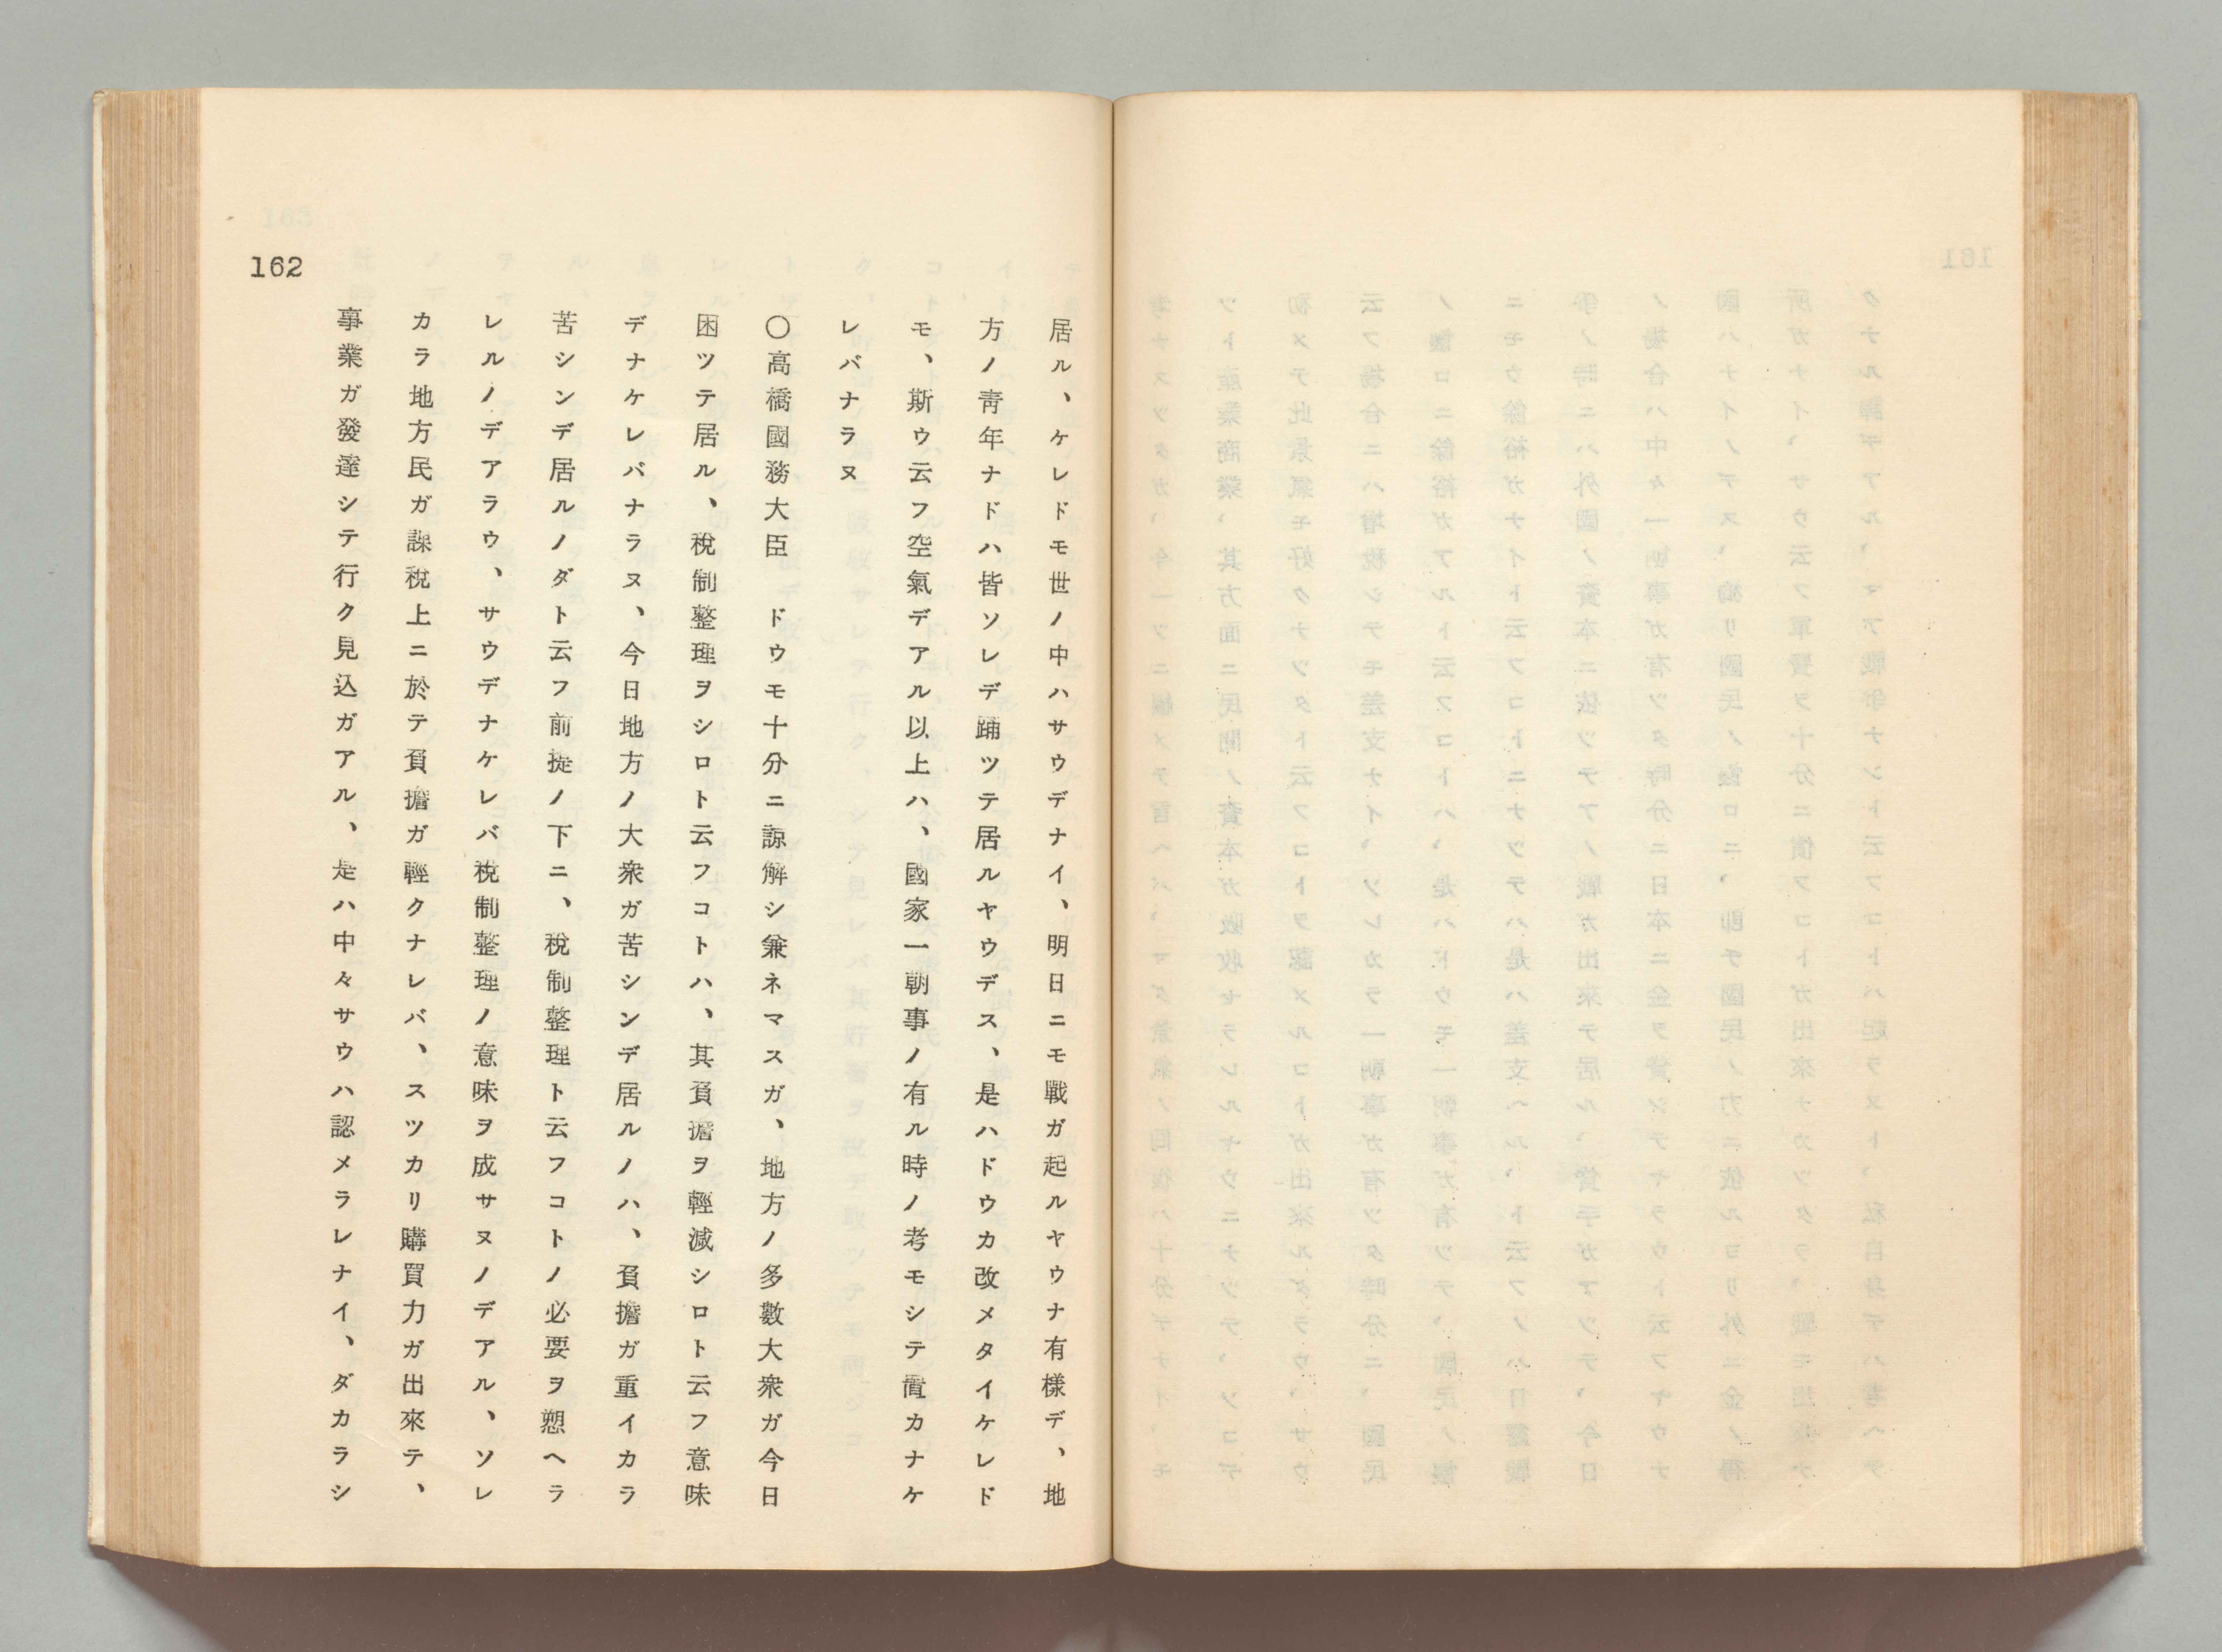 162
居ル、ケレドモ世ノ中ハサウデナイ、明日ニモ戰ガ起ルヤウナ有樣デ、地
方ノ靑年ナドハ皆ソレデ踊ツテ居ルヤウデス、是ハドウカ改メタイケレド
モ、斯ウ云フ空氣デアル以上ハ、國家一朝事ノ有ル時ノ考モシテ置カナケ
レバナラヌ
〇高橋國務大臣　ドウモ十分ニ諒解シ兼ネマスガ、地方ノ多數大衆ガ今日
困ツテ居ル、稅制整理ヲシロト云フコトハ、其負擔ヲ輕減シロト云フ意味
デナケレバナラヌ、今日地方ノ大衆ガ苦シンデ居ルノハ、負擔ガ重イカラ
苦シンデ居ルノダト云フ前提ノ下ニ、稅制整理ト云フコトノ必要ヲ愬ヘラ
レルノデアラウ、サウデナケレバ稅制整理ノ意味ヲ成サヌノデアル、ソレ
カラ地方民ガ課稅上ニ於テ負擔ガ輕クナレバ、スツカリ購買力ガ出來テ、
事業ガ發達シテ行ク見込ガアル、是ハ中々サウハ認メラレナイ、ダカラシ